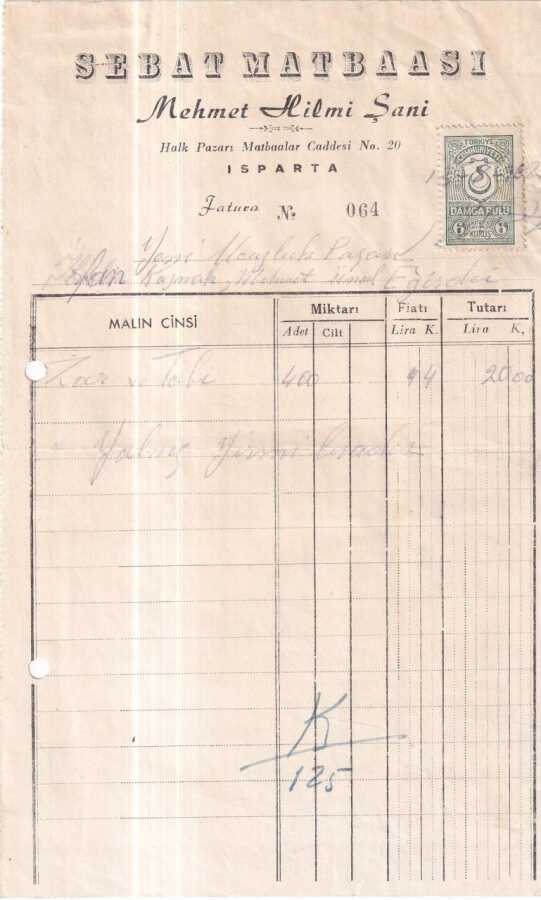 SEBAT MATBAASI
Mehmet Hilmi Şani
Halk Pazarı Matbaalar Caddesi No. 20
ISPARTA
Fatura No. 064
TÜRKİYE
CUMHURİYETİ
DAMGA PULU
6 KURUŞ 6
Yeni Ucuzluk Pazarı
Mehmet Eğirdir
MALIN CİNSİ
Miktarı
Fiatı
Tutarı
Adet
Cilt
Lira K.
Lira K.
Zarf ve Tabı 400 20 00
Yalnız Yirmi liradır
K
125